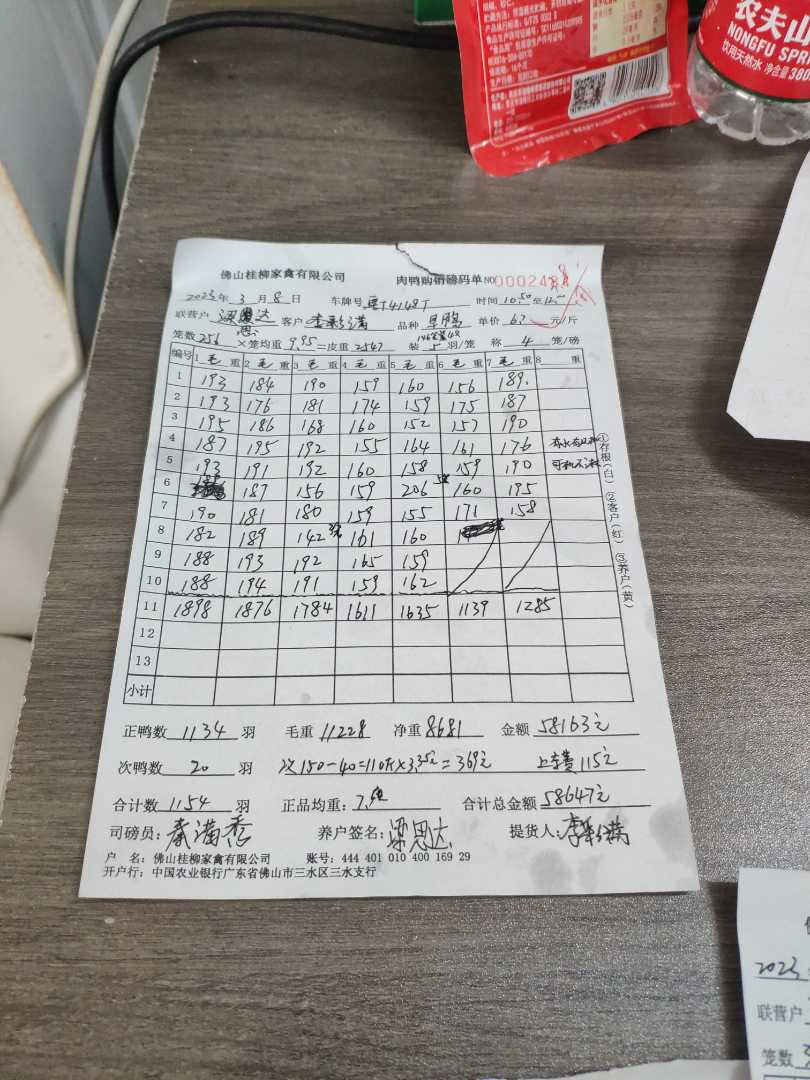 农夫山
NONGFU SPRI
饮用天然水 净含量380
佛山桂柳家禽有限公司 肉鸭购销磅码单 NO 0002484
2023年 3 月 8 日 车牌号 粤T4148T 时间 10:50 至 12:00
联营户 客户 李彩满 品种 单价 6.7 元/斤
笼数 256 ×笼均重 9.95 =皮重 2547 装 5 羽/笼 称 4 笼/磅
编号 1 毛 重 2 毛 重 3 毛 重 4 毛 重 5 毛 重 6 毛 重 7 毛 重 8 重
1 193 184 190 159 160 156 189
2 193 176 181 174 159 175 187
3 195 186 168 160 152 157 190
4 187 195 192 155 164 161 176
5 193 191 192 160 158 159 190
6 187 156 159 206 160 195
7 190 181 180 159 155 171 158
8 182 189 142 161 160
9 188 193 192 165 159
10 188 194 191 159 162
11 1898 1876 1784 1611 1635 1139 1285
12
13
小计
①存根(白) ②客户(红) ③养户(黄)
正鸭数 1134 羽 毛重 11228 净重 8681 金额 58163元
次鸭数 20 羽 次150-40=110斤×3.35元=369元 上车费115元
合计数 1154 羽 正品均重: 7. 合计总金额 58647元
司磅员: 秦满秀 养户签名: 梁思达 提货人: 李彩满
户 名: 佛山桂柳家禽有限公司 账号: 444 401 010 400 169 29
开户行: 中国农业银行广东省佛山市三水区三水支行
2023
联营户
笼数